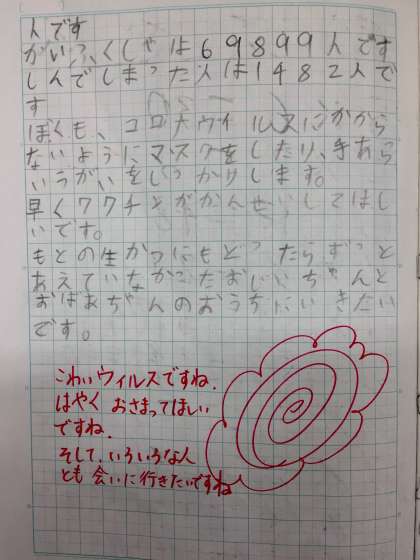 人です
がいっ、くしゃは69899人です
しんでしまった人は14882人で
す
ぼくも、コロナウイルスにかから
ないようにマスクをしたり、手あら
いうがいをしっかりします。
早くワクチンがかんせいしてほし
いです。
もとの生かつにもどったらずっと
あえていなかったおじいちゃんと
おばあちゃんのおうちにいきたい
です。
こわいウィルスですね。
はやく おさまってほしい
ですね。
そして、いろいろな人
とも 会いに行きたいですね